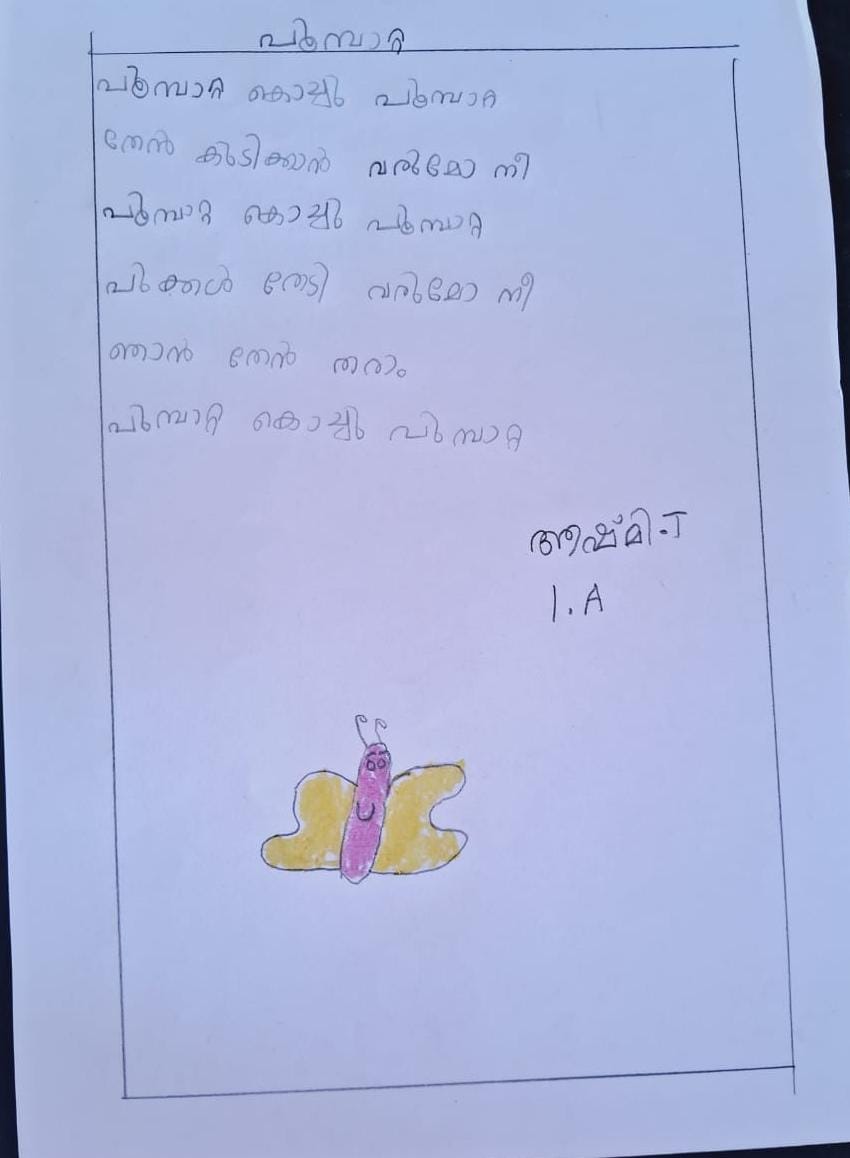 പൂമ്പാറ്റ
പൂമ്പാറ്റ കൊച്ചു പൂമ്പാറ്റ
തേൻ കുടിക്കാൻ വരുമോ നീ
പൂമ്പാറ്റ കൊച്ചു പൂമ്പാറ്റ
പൂക്കൾ തേടി വരുമോ നീ
ഞാൻ തേൻ തരാം
പൂമ്പാറ്റ കൊച്ചു പൂമ്പാറ്റ
ആഷ്മി.T
1.A